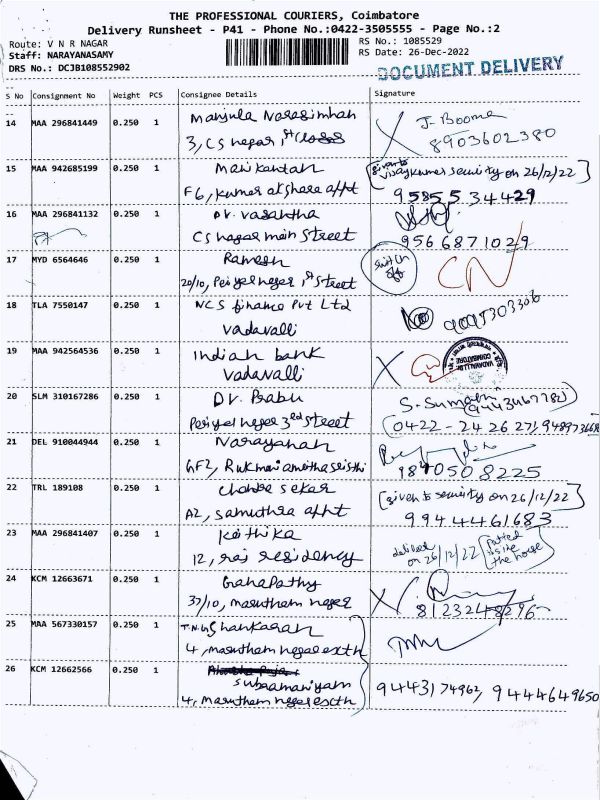 THE PROFESSIONAL COURIERS, Coimbatore
Delivery Runsheet - P41 - Phone No.:0422-3505555 - Page No.:2
Route: V N R NAGAR
RS No.: 1085529
Staff: NARAYANASAMY
RS Date: 26-Dec-2022
DRS No.: DCJB108552902
DOCUMENT DELIVERY
S No Consignment No Weight PCS Consignee Details Signature
14 MAA 296841449 0.250 1 Manjula Narasimhan J. Booma
3, CS nagar 1st 8903602380
15 MAA 942685199 0.250 1 Manikantan given to vijaykumar security on 26/12/22
F6, kumar akshara aptt 9585534429
16 MAA 296841132 0.250 1 Dr. vasantha
CS nagar main Street 9566871029
17 MYD 6564646 0.250 1 Ramesh switch off CN
20/10, Periyar nagar 1st street
18 TLA 7550147 0.250 1 NCS finance Pvt Ltd
vadavalli
19 MAA 942564536 0.250 1 Indian bank
vadavalli
20 SLM 310167286 0.250 1 Dr. Prabu S. Sumathi
Periyar nagar 3rd street 0422 - 24 26 271
21 DEL 910044944 0.250 1 Narayanan
GF2, Rukmani amirtha
22 TRL 189108 0.250 1 Chandra sekar [given to security on 26/12/22]
A2, samuthra aptt 9944461683
23 MAA 296841407 0.250 1 Kathika delivered on 26/12/22 (putted inside the house)
12, raj residency
24 KCM 12663671 0.250 1 Ganapathy
37/10, marutham nagar
25 MAA 567330157 0.250 1 Shankaran
4, marutham nagar extn
26 KCM 12662566 0.250 1
subramaniyam 9443174962, 9444649650
4, marutham nagar extn